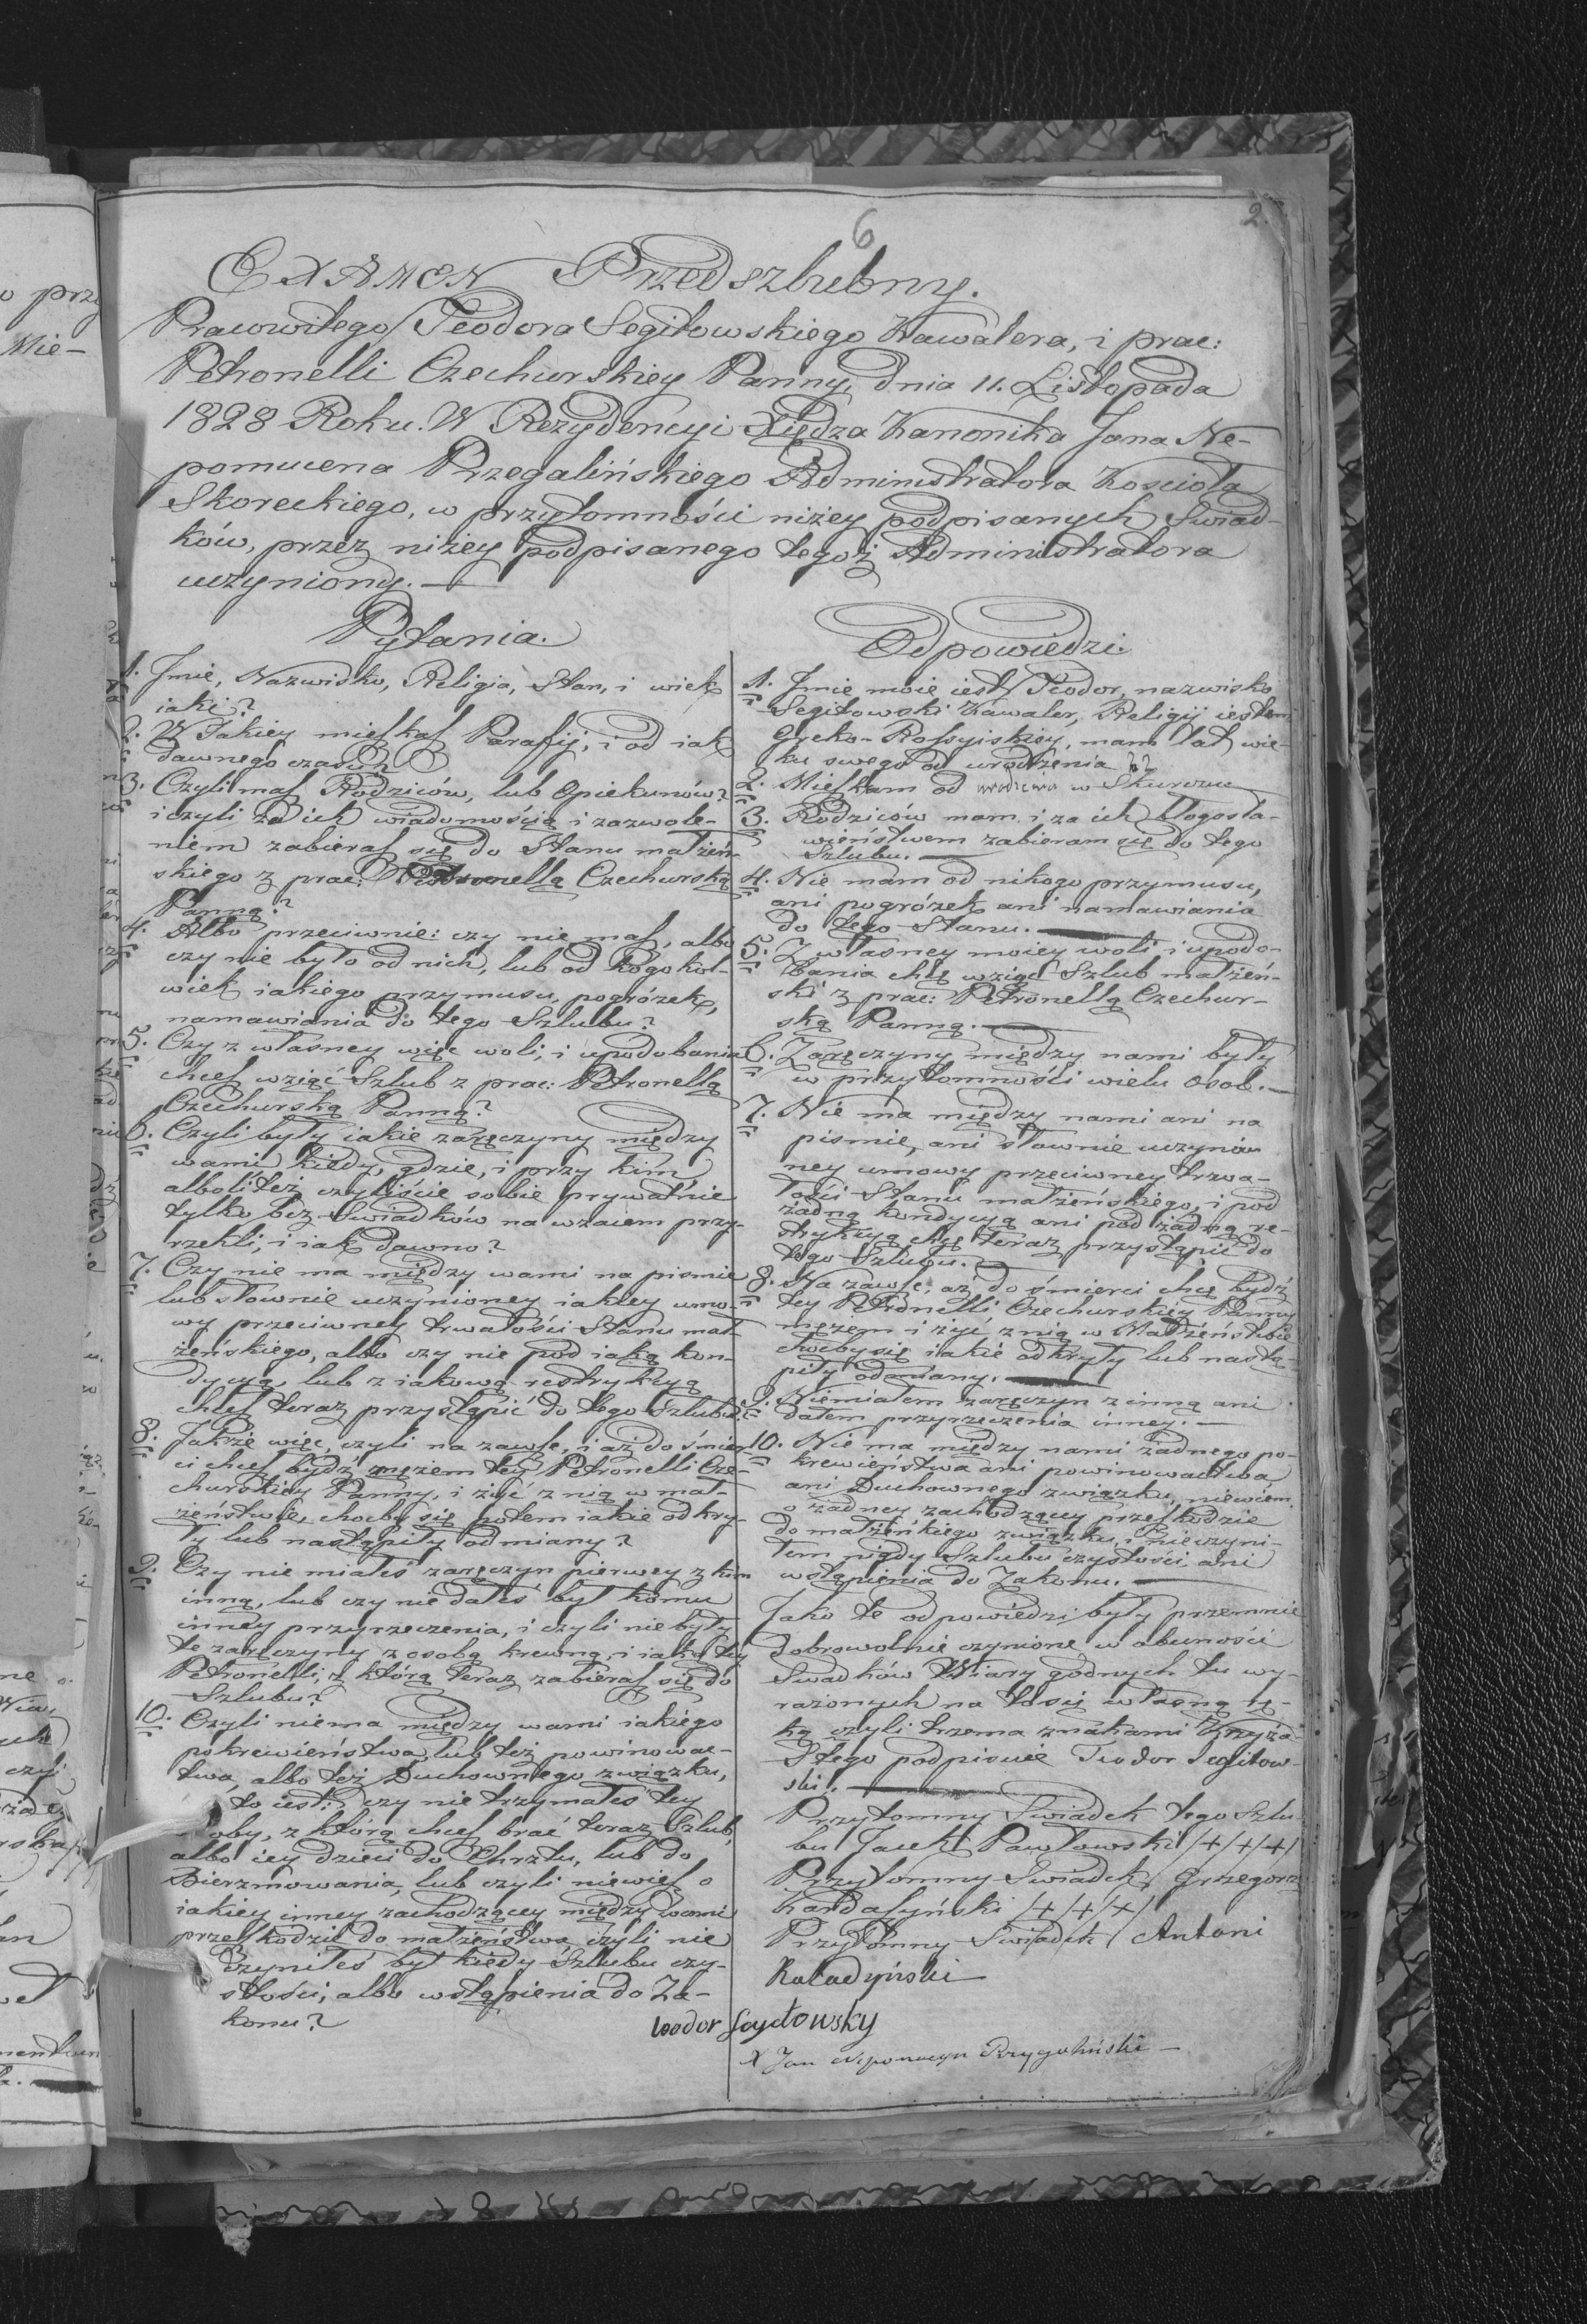 6
2.
EXAMEN Przedszlubny.
Pracowitego Teodora Segitowskiego Kawalera, i prac:
Petronelli Czechurskiey Panny, dnia 11. Listopada
1828 Roku. W Rezydencyi Xiędza Kanonika Jana Ne-
pomucena Przegalińskiego Administratora Kościoła
Skoreckiego, w przytomności niżey podpisanych Swiad-
ków, przez niżey podpisanego tegoż Administratora
uczyniony.
Pytania.
1. Jmie, Nazwisko, Religia, Stan, i wiek
iaki?
2. W Jakiey mieszkasz Parafij, i od iak
dawnego czasu?
3. Czyli masz Rodziców, lub Opiekunów?
i czyli za ich wiadomością i zazwole-
niem zabierasz się do Stanu małżeń-
skiego z prac: Petronellą Czechurską
Panną?
4. Albo przeciwnie: czy nie masz, albo
czy nie było od nich, lub od kogokol-
wiek iakiego przymusu, pogrózek,
namawiania do tego Szlubu?
5. Czy z własney więc woli, i upodobania
chcesz wziąć Szlub z prac: Petronellą
Czechurską Panną?
6. Czyli były iakie zaręczyny między
wami, kiedy, gdzie, i przy kim
alboliteż czyliście sobie prywatnie
tylko bez Swiadków na wzaiem przy-
rzekli, i iak dawno?
7. Czy nie ma między wami na pismie
lub słownie uczynioney iakiey umo-
wy przeciwney trwałości Stanu mał-
żeńskiego, albo czy nie pod iaką kon-
dycyą, lub z iakową restrykcyą
chcesz teraz przystąpić do tego Szlubu?
8. Jakże więc, czyli na zawsze, i aż do śmier-
ci chcesz bydź mężem tey Petronelli Cze-
churskiey Panny, i żyć z nią w mał-
żeństwie, choćby się potem iakie odkry-
ły lub nastąpiły odmiany?
9. Czy nie miałeś zaręczyn pierwey z kim
inną, lub czy nie dałeś był komu
inney przyrzeczenia, i czyli nie były
te zaręczyny z osobą krewną, i iaką tey
Petronelli, z którą teraz zabierasz się do
Szlubu?
10. Czyli niema między wami iakiego
pokrewieństwa, lub też powinowac-
twa, albo też Duchownego związku,
to iest: czy nie trzymałeś tey
oby, z którą chcesz brać teraz Szlub,
albo iey dzieci do Chrztu, lub do
Bierzmowania, lub czyli niewiesz o
iakiey inney zachodzącey między wami
przeszkodzie do małżeństwa, czyli nie
Czyniłeś był kiedy Szlubu czy-
stości, albo wstąpienia do Za-
konu?
Odpowiedzi.
1. Jmie moie iest Teodor, nazwisko
Segitowski Kawaler, Religij iestem
Greko-Rossyiskiey, mam lat wie-
ku swego od urodzenia 22
2. Mieszkam od urodzenia w Skurczu
3. Rodziców mam i za ich błogosła-
wieństwem zabieram się do tego
Szlubu.
4. Nie mam od nikogo przymusu,
ani pogrózek ani namawiania
do tego Stanu.
5. Z własney moiey woli i upodo-
bania chcę wziąć Szlub małżeń-
ski z prac: Petronellą Czechur-
ską Panną.
6. Zaręczyny między nami były
w przytomności wielu osob.
7. Nie ma między nami ani na
pismie, ani słownie uczynio-
ney umowy przeciwney trwa-
łości Stanu małżeńskiego, i pod
żadną kondycyą ani pod żadną re-
strykcyą chcę teraz przystąpić do
tego Szlubu.
8. Na zawsze, aż do śmierci chcę bydź
tey Petronelli Czechurskiey Panny
mężem i żyć z nią w Małżeństwie
choćby się iakie odkryły lub nastą-
piły odmiany.
9. Niemiałem zaręczyn z inną ani
dałem przyrzeczenia inney.
10. Nie ma między nami żadnego po-
krewieństwa ani powinowactwa
ani Duchownego związku, niewiem
o żadney zachodzącey przeszkodzie
do małżeńskiego związku, i nieczyni-
łem nigdy Szlubu czystości, ani
wstąpienia do Zakonu.
Jako te odpowiedzi były przezemnie
dobrowolnie czynione w obecności
Swiadków Wiary godnych tu wy-
rażonych na to się własną rę-
ką czyli trzema znakami Krzyża
Stego podpisuię Teodor Segitow-
ski.
Przytomny Swiadek tego Szlu
bu Jacek Pawłowski /+/+/+/
Przytomny Swiadek Grzegorz
Kardaszyński /+/+/+/
Przytomny Swiadek Antoni
Teodor
X Jan Nepomucyn Przegaliński